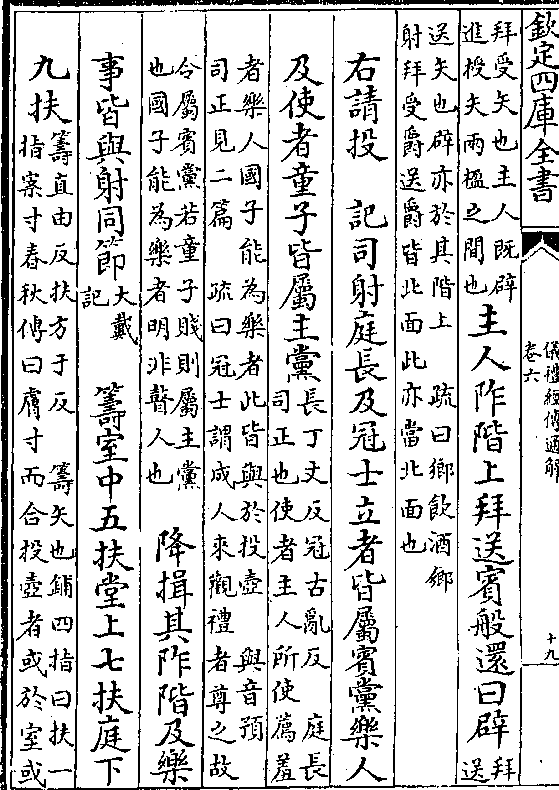 欽定四庫全書
儀禮經傳通解
卷六
十九
拜受矢也主人既辟
進授矢兩楹之間也
主人阼階上拜送賓般還曰辟
拜
送
送矢也辟亦於其階上　疏曰鄉飲酒鄉
射拜受爵送爵皆北面此亦當北面也
右請投　記司射庭長及冠士立者皆屬賓黨樂人
及使者童子皆屬主黨
長丁丈反冠古亂反　庭長
司正也使者主人所使薦羞
者樂人國子能為樂者此皆與於投壺　與音預
司正見二篇　疏曰冠士謂成人來觀禮者尊之故
令屬賓黨若童子賤則屬主黨
也國子能為樂者明非瞽人也
降揖其阼階及樂
事皆與射同節
大戴
記
籌室中五扶堂上七扶庭下
九扶
籌直由反扶方于反　籌矢也鋪四指曰扶一
指案寸春秋傳曰膚寸而合投壺者或於室或